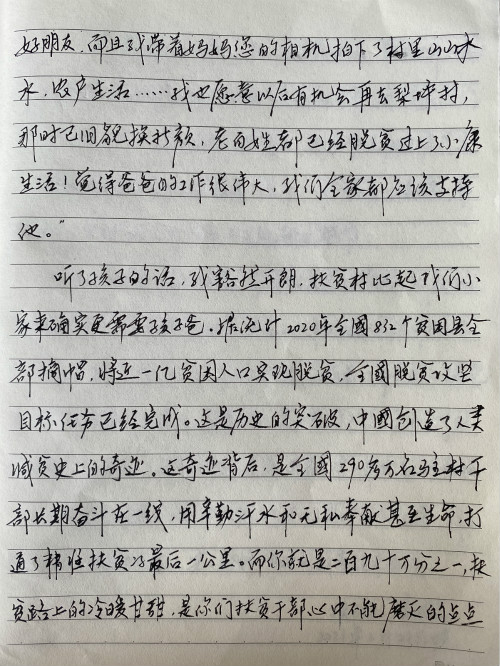 好朋友，而且我带着妈妈您的相机拍下了村里山山水
水，农户生活……我也愿意以后有机会再去梨坪村，
那时已旧貌换新颜，老百姓都已经脱贫过上了小康
生活！觉得爸爸的工作很伟大，我们全家都应该支持
他。”
听了孩子的话，我豁然开朗，扶贫村比起我们小
家来确实更需要孩子爸。据统计2020年全国832个贫困县全
部摘帽，将近一亿贫困人口实现脱贫，全国脱贫攻坚
目标任务已经完成。这是历史的突破，中国创造了人类
减贫史上的奇迹。这奇迹背后，是全国290多万名驻村干
部长期奋斗在一线，用辛勤汗水和无私奉献甚至生命，打
通了精准扶贫的最后一公里。而你就是二百九十万分之一，扶
贫路上的冷暖甘甜，是你们扶贫干部心中不能磨灭的点点